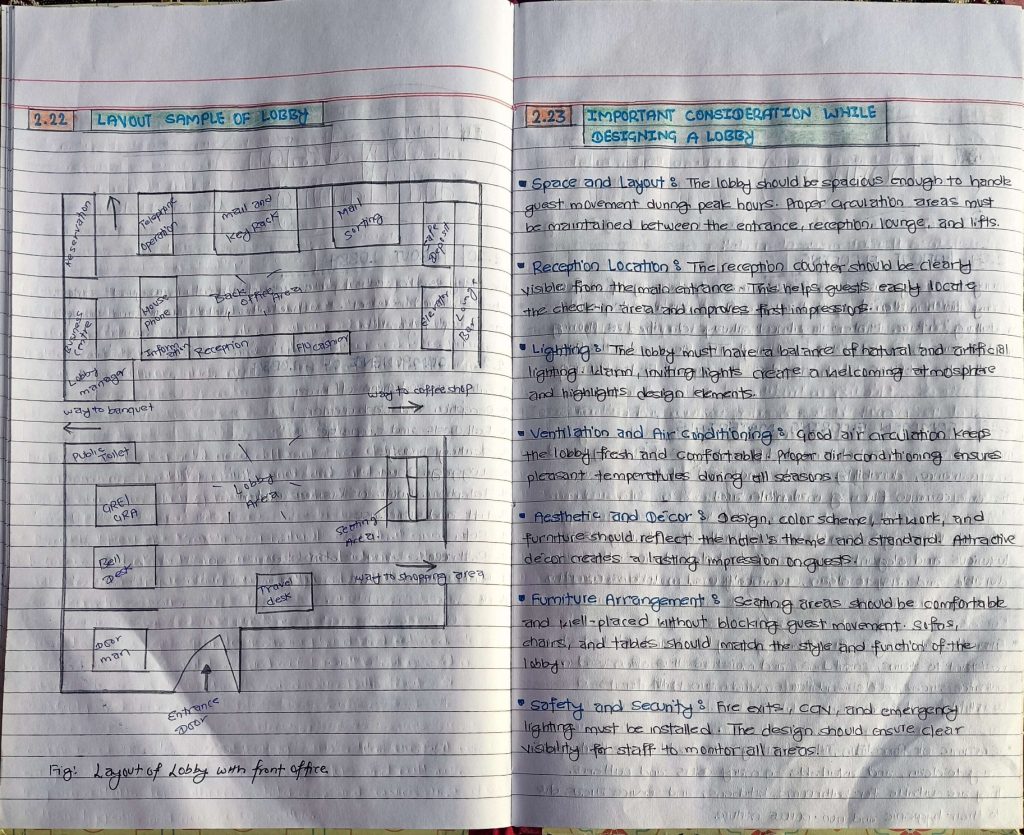 2.22 LAYOUT SAMPLE OF LOBBY
Reservation
Telephone
Operation
Mail and
Key Rack
Mail
Sorting
Safe
Deposit
House
Phone
Back
Office
Area
Elevator
Bar
Business
Centre
Information
Reception
F/O cashier
Lobby
manager
way to banquet
way to coffee shop
Public
Toilet
GRE/
GRA
Lobby
Area
Seating
Area.
Bell
Desk
way to shopping area
Travel
desk
Door
man
Entrance
Door
Fig: Layout of Lobby with front office.
2.23 IMPORTANT CONSIDERATION WHILE
DESIGNING A LOBBY
• Space and Layout : The lobby should be spacious enough to handle
guest movement during peak hours. Proper circulation areas must
be maintained between the entrance, reception, lounge, and lifts.
• Reception Location : The reception counter should be clearly
visible from the main entrance. This helps guests easily locate
the check-in area and improves first impressions.
• Lighting : The lobby must have a balance of natural and artificial
lighting. Warm, inviting lights create a welcoming atmosphere
and highlights design elements.
• Ventilation and Air Conditioning : Good air circulation keeps
the lobby fresh and comfortable. Proper air-conditioning ensures
pleasant temperatures during all seasons.
• Aesthetic and Décor : Design, color scheme, artwork, and
furniture should reflect the hotel's theme and standard. Attractive
décor creates a lasting impression on guests.
• Furniture Arrangement : Seating areas should be comfortable
and well-placed without blocking guest movement. Sofas,
chairs, and tables should match the style and function of the
lobby.
• Safety and Security : Fire exits, CCTV, and emergency
lighting must be installed. The design should ensure clear
visibility for staff to monitor all areas.